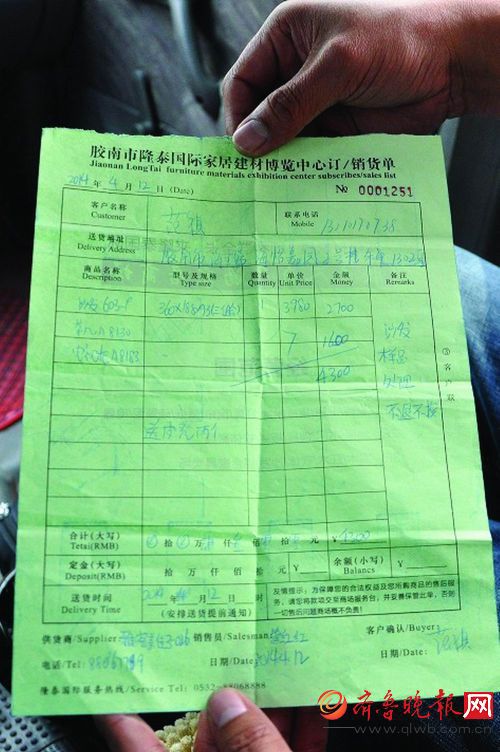 胶南市隆泰国际家居建材博览中心订/销货单
Jiaonan LongTai furniture materials exhibition center subscribes/sales list
2014 年 4 月 12 日 (Date) № 0001251
客户名称 Customer 范祺 联系电话 Mobile
送货地址 Delivery Address 胶南市
商品名称 Description 型号及规格 Type size 数量 Quantity 单价 Unit Price 金额 Money 备注 Remarks
沙发 603-P 3980 2700
A8130 1600
A8183 4300
沙发
样品
处理
不退不换
③客户联
合计(大写) Tetai(RMB) 拾 万 仟 佰 拾 元 ¥ 4300
定金(大写) Deposit(RMB) 拾 万 仟 佰 拾 元 ¥ 余额(小写) Balancs ¥
送货时间 Delivery Time 2014 年 4 月 12 日
(安排送货提前通知)
友情提示:为保障您的合法权益及您所购商品的售后服务,请您将款项交至商场服务台,并妥善保管此单,否则一切售后问题商场概不负责!
供货商/Supplier 销售员/Salesman 客户确认/Buyer: 范祺
电话/Tel: 日期/Date: 2014.4.12 日期/Date:
隆泰国际服务热线/Service Tel: 0532-88068888
齐鲁晚报网
www.qlwb.com.cn